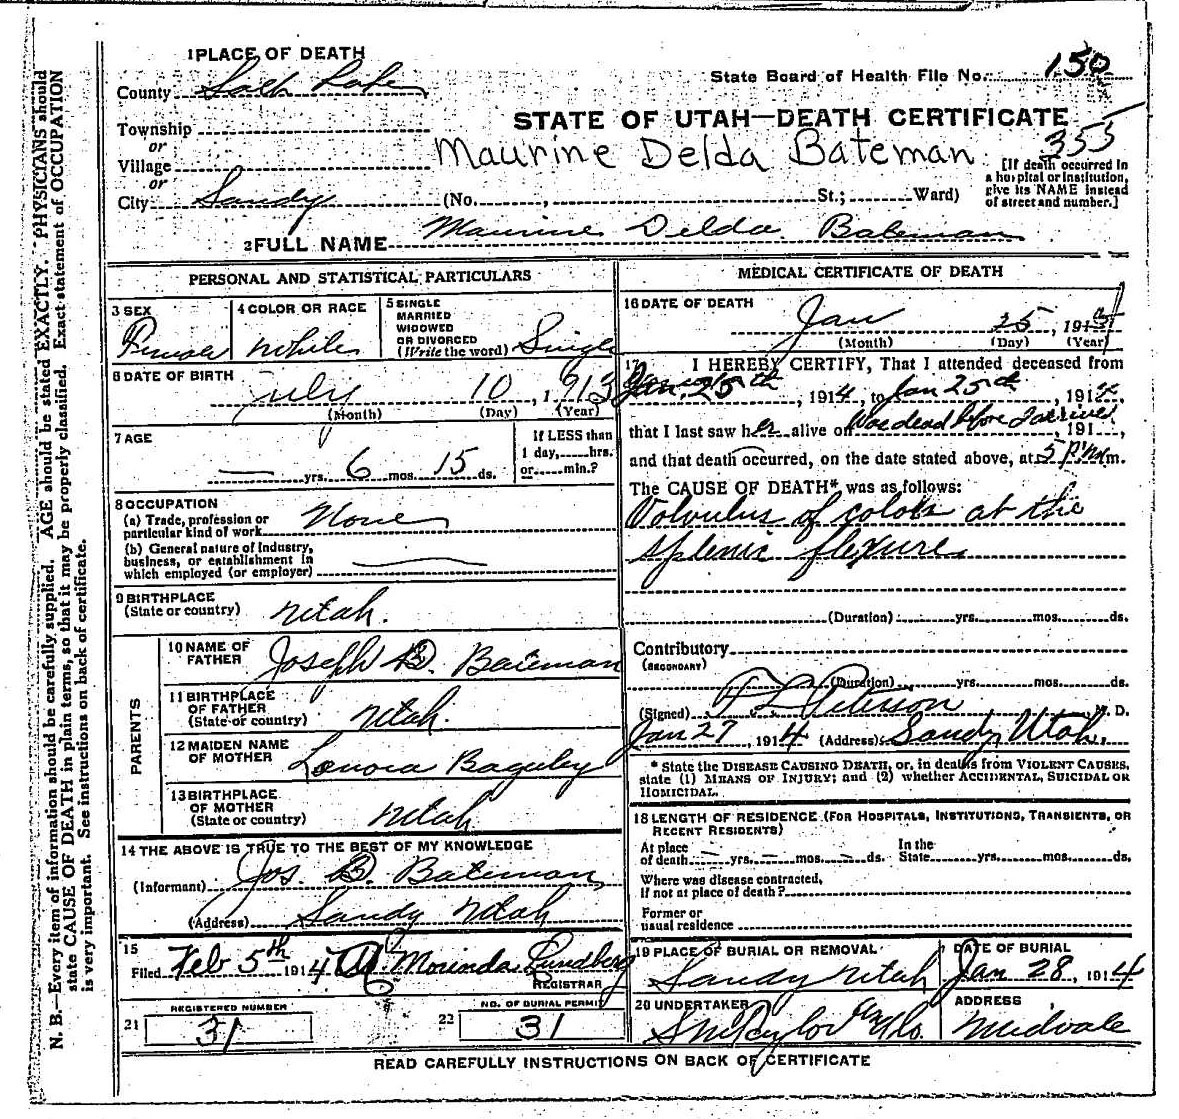 1 PLACE OF DEATH
County Salt Lake
State Board of Health File No. 150
Township
or
Village
or
City Sandy (No. , St.; Ward)
STATE OF UTAH—DEATH CERTIFICATE
355
Maurine Delda Bateman
[If death occurred in
a hospital or institution,
give its NAME instead
of street and number.]
2 FULL NAME Maurine Delda Bateman
PERSONAL AND STATISTICAL PARTICULARS
3 SEX
Female
4 COLOR OR RACE
White
5 SINGLE
MARRIED
WIDOWED
OR DIVORCED
(Write the word) Single
6 DATE OF BIRTH
July 10, 1913
(Month) (Day) (Year)
7 AGE
— yrs. 6 mos. 15 ds.
If LESS than
1 day, hrs.
or min.?
8 OCCUPATION
(a) Trade, profession or
particular kind of work None
(b) General nature of Industry,
business, or establishment in
which employed (or employer)
9 BIRTHPLACE
(State or country) Utah.
PARENTS
10 NAME OF
FATHER Joseph B. Bateman
11 BIRTHPLACE
OF FATHER
(State or country) Utah.
12 MAIDEN NAME
OF MOTHER Lenora Baguley
13 BIRTHPLACE
OF MOTHER
(State or country) Utah
14 THE ABOVE IS TRUE TO THE BEST OF MY KNOWLEDGE
(Informant) Jos. B. Bateman,
(Address) Sandy Utah
15
Filed Feb 5th 1914 Morinda Lundberg
REGISTRAR
REGISTERED NUMBER
21 31
NO. OF BURIAL PERMIT
22 31
MEDICAL CERTIFICATE OF DEATH
16 DATE OF DEATH
Jan 25, 1914
(Month) (Day) (Year)
17 I HEREBY CERTIFY, That I attended deceased from
Jan. 25th, 1914, to Jan 25th, 1914,
that I last saw her alive on Was dead before I arrived, 191 ,
and that death occurred, on the date stated above, at 5 P.M m.
The CAUSE OF DEATH* was as follows:
Volvulus of colon at the
splenic flexure
(Duration) yrs. mos. ds.
Contributory
(SECONDARY)
(Duration) yrs. mos. ds.
(Signed) Peterson M. D.
Jan 27, 1914 (Address) Sandy, Utah.
* State the DISEASE CAUSING DEATH, or, in deaths from VIOLENT CAUSES,
state (1) MEANS OF INJURY; and (2) whether ACCIDENTAL, SUICIDAL OR
HOMICIDAL.
18 LENGTH OF RESIDENCE (FOR HOSPITALS, INSTITUTIONS, TRANSIENTS, OR
RECENT RESIDENTS)
At place
of death — yrs. — mos. — ds.
In the
State yrs. mos. ds.
Where was disease contracted,
if not at place of death?
Former or
usual residence
19 PLACE OF BURIAL OR REMOVAL
Sandy Utah
DATE OF BURIAL
Jan 28, 1914
20 UNDERTAKER
ADDRESS
Midvale
READ CAREFULLY INSTRUCTIONS ON BACK OF CERTIFICATE
N. B.—Every item of information should be carefully supplied. AGE should be stated EXACTLY. PHYSICIANS should
state CAUSE OF DEATH in plain terms, so that it may be properly classified. Exact statement of OCCUPATION
is very important. See instructions on back of certificate.